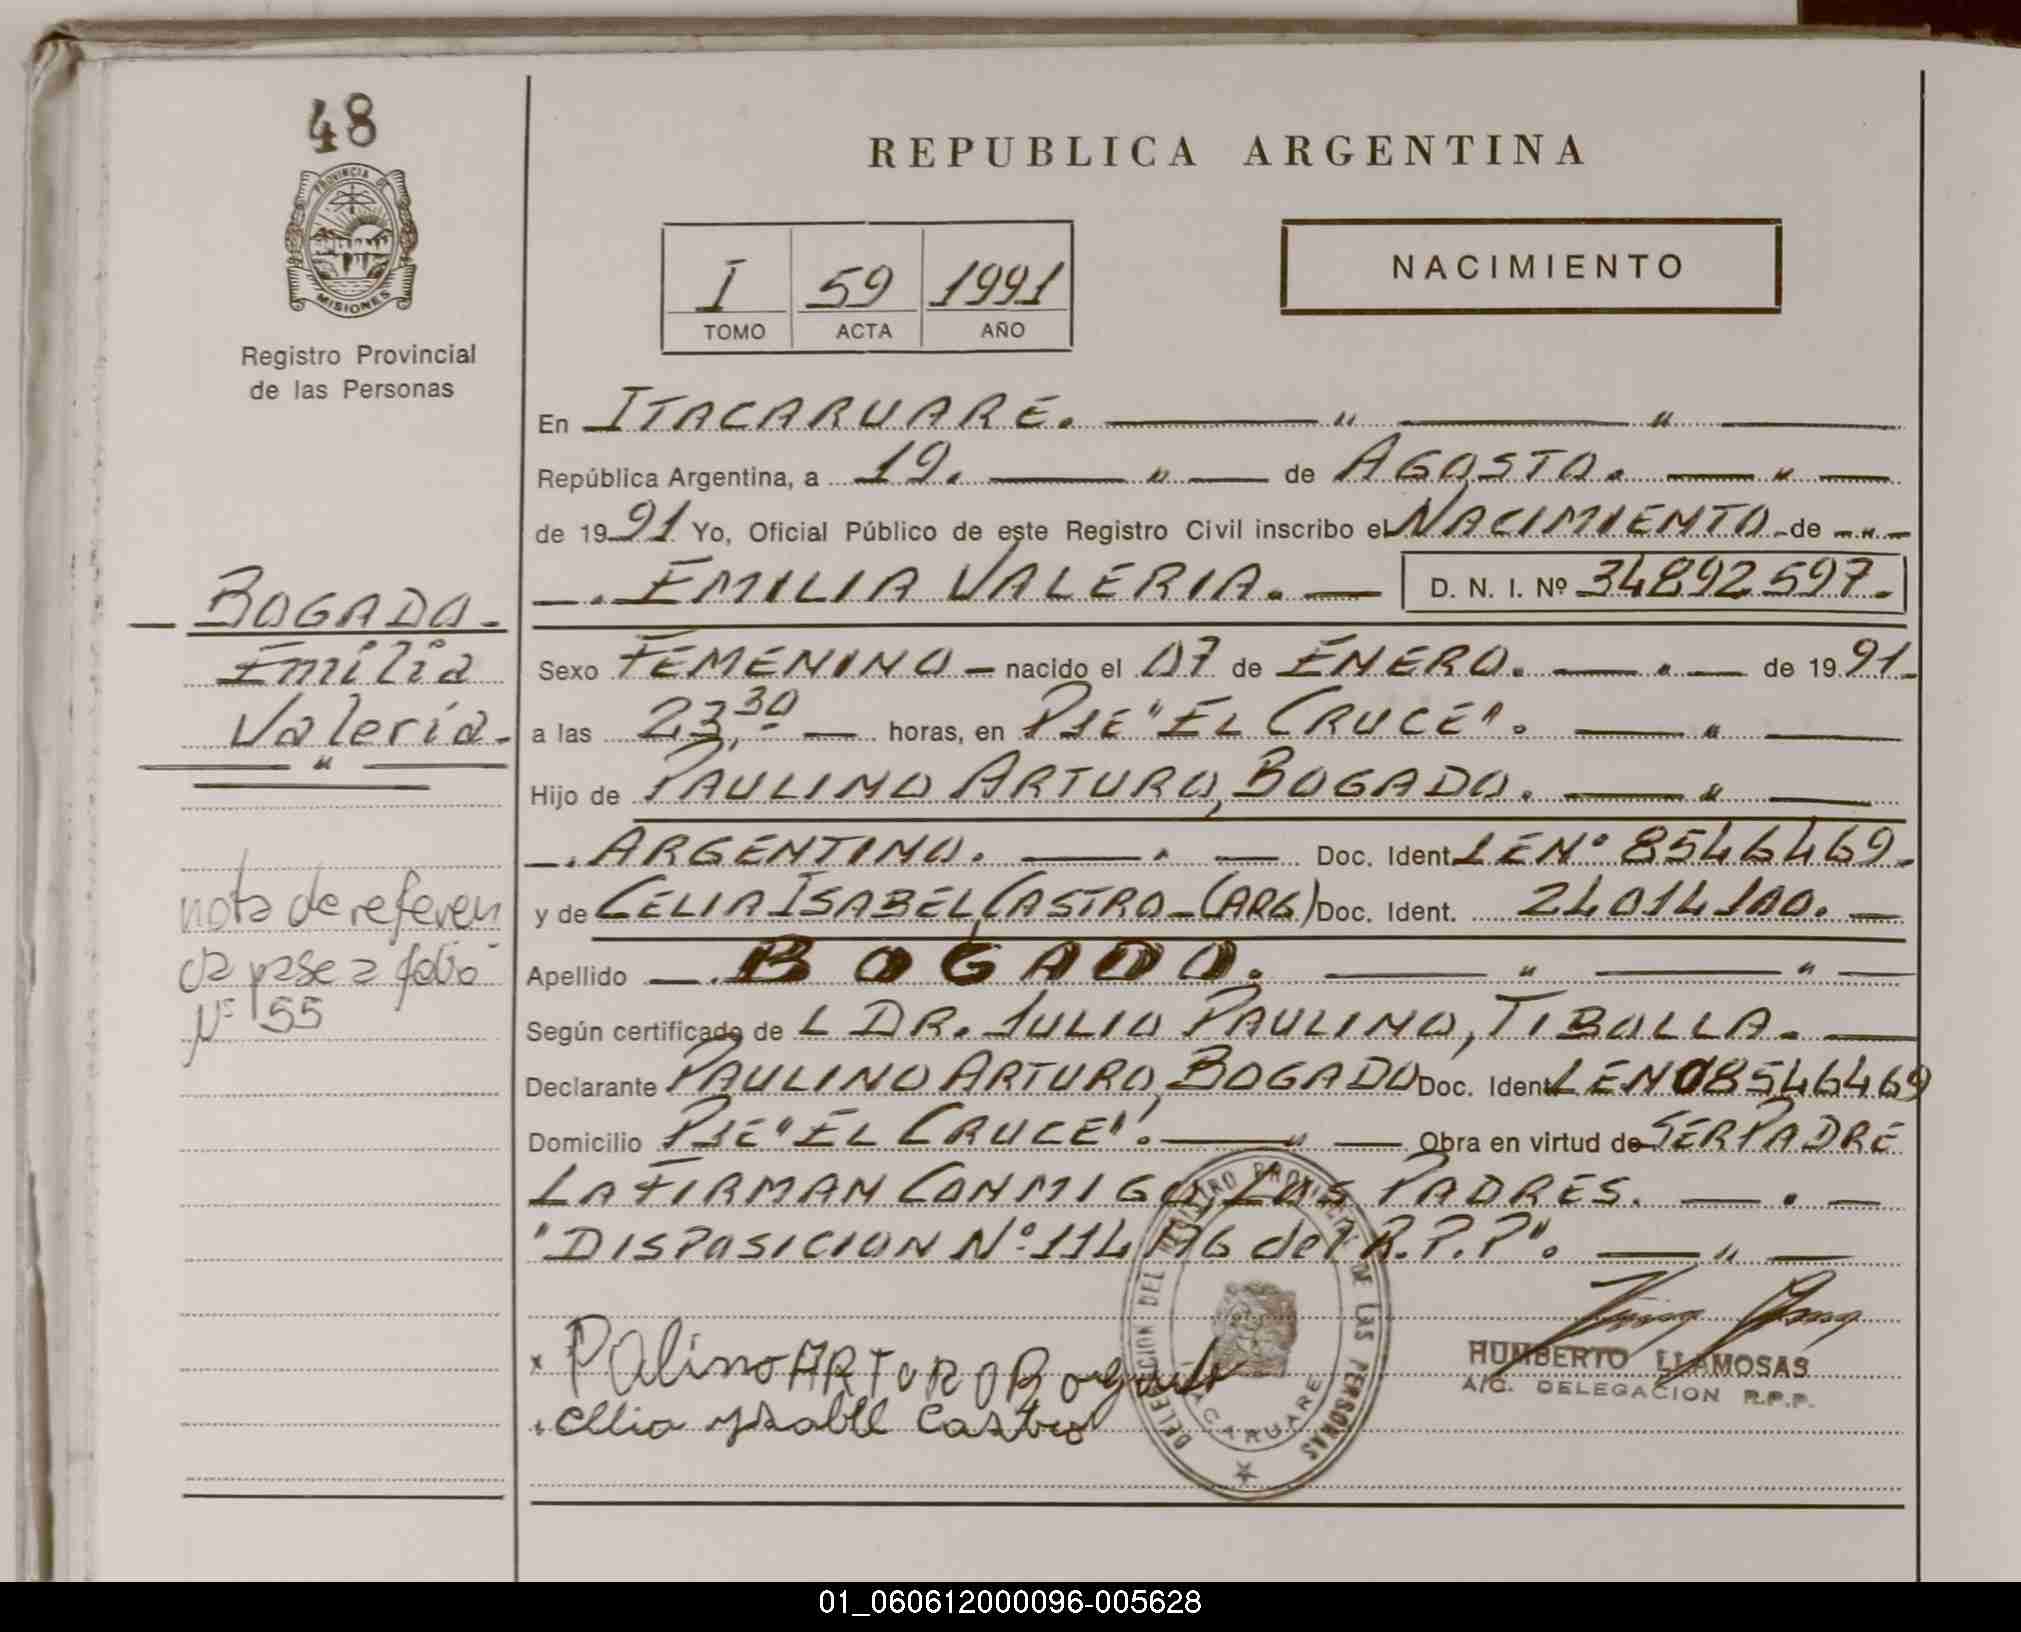 48
PROVINCIA DE
MISIONES
Registro Provincial
de las Personas
REPUBLICA ARGENTINA
I 59 1991
TOMO ACTA AÑO
NACIMIENTO
En ITACARUARE. " "
República Argentina, a 19. " de AGOSTO. "
de 1991 Yo, Oficial Público de este Registro Civil inscribo el NACIMIENTO de "
EMILIA VALERIA. D. N. I. Nº 34892.597.
BOGADO.
Emilia
Valeria.
"
Sexo FEMENINO - nacido el 07 de ENERO. de 1991.
a las 23,30 horas, en PJE "EL CRUCE". "
Hijo de PAULINO ARTURO, BOGADO. "
ARGENTINO. Doc. Ident. LEN° 8546469.
y de CELIA ISABEL, CASTRO - (ARG) Doc. Ident. 24014100.
Apellido BOGADO. " "
nota de referen
cia pase a folio
Nº 55
Según certificado de L DR. JULIO PAULINO, TIBOLLA.
Declarante PAULINO ARTURO, BOGADO Doc. Ident. LEN08546469
Domicilio PJE "EL CRUCE". " Obra en virtud de SER PADRE
LA FIRMAN CONMIGO, LOS PADRES.
"DISPOSICION N° 114/76 del R.P.P". "
x PAlino ARTURO Bogado
Celia ysabel Castro
DELEGACION DEL REGISTRO PROVINCIAL DE LAS PERSONAS
ITACARUARE
HUMBERTO LLAMOSAS
A/C. DELEGACION R.P.P.
01_060612000096-005628